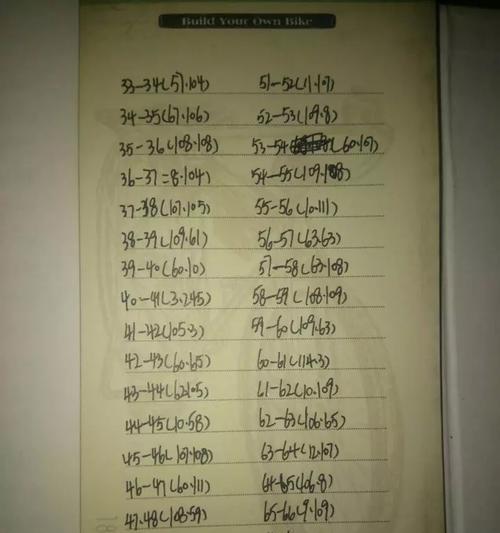 Build Your Own Bike
33-34(57.104)
34-35(67.106)
35-36(108.108)
36-37=8.104)
37-38(107.105)
38-39(109.61)
39-40(60.10)
40-41(3.245)
41-42(105.3)
42-43(60.65)
43-44(62.105)
44-45(10.58)
45-46(107.108)
46-47(60.111)
47.48(108.59)
51-52(11.107)
52-53(109.8)
53-54(60.107)
54-55(109.108)
55-56(10.111)
56-57(63.63)
57-58(63.108)
58-59(108.109)
59-60(109.63)
60-61(114.3)
61-62(10.109)
62-63(106.65)
63-64(12.107)
64-65(106.8)
65-66(9.109)